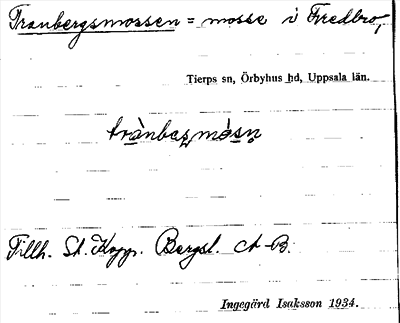 Tranbergsmossen = mosse i Fredbro,
Tierps sn, Örbyhus hd, Uppsala län.
trànbæṣmósn̥
Tillh. St. Kopp. Bergsl. A-B.
Ingegärd Isaksson 1934.